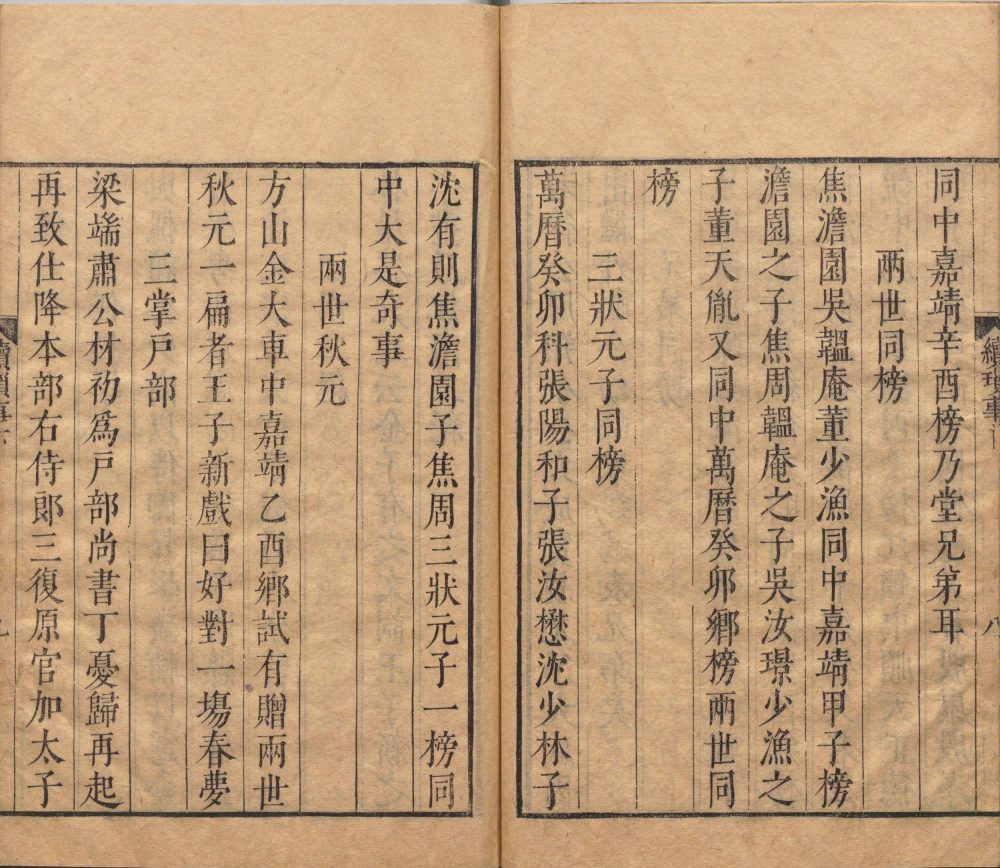 同中嘉靖辛酉榜乃堂兄弟耳
兩世同榜
焦澹園吳韞庵董少漁同中嘉靖甲子榜
澹園之子焦周韞庵之子吳汝璟少漁之
子董天胤又同中萬曆癸卯鄉榜兩世同
榜
三狀元子同榜
萬曆癸卯科張陽和子張汝懋沈少林子
沈有則焦澹園子焦周三狀元子一榜同
中大是奇事
兩世秋元
方山金大車中嘉靖乙酉鄉試有贈兩世
秋元一扁者王子新戲曰好對一場春夢
三掌戶部
梁端肅公材初爲戶部尚書丁憂歸再起
再致仕降本部右侍郎三復原官加太子